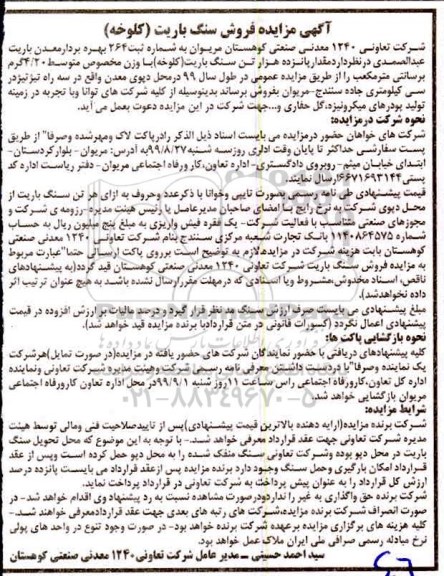 آگهی مزایده فروش سنگ باریت (کلوخه)
شرکت تعاونی ۱۲۴۰ معدنی صنعتی کوهستان مریوان به شماره ثبت۲۶۴ بهره بردارمعدن باریت
عبدالصمدی درنظرداردمقدارپانزده هزار تن سنگ باریت(کلوخه)با وزن مخصوص متوسط۴/۲۰گرم
برسانتی مترمکعب را از طریق مزایده عمومی در طول سال ۹۹ درمحل دپوی معدن واقع در سه راه تیژتیژدر
سی کیلومتری جاده سنندج-مریوان بفروش برساند بدینوسیله از کلیه شرکت های توانا وبا تجربه در زمینه
تولید پودرهای میکرونیزه،گل حفاری و...جهت شرکت در این مزایده دعوت بعمل می آید.
نحوه شرکت درمزایده:
شرکت های خواهان حضور درمزایده می بایست اسناد ذیل الذکر رادرپاکت لاک ومهرشده وصرفا" از طریق
پست سفارشی حداکثر تا پایان وقت اداری روزسه شنبه۹۹/۸/۲۷به آدرس: مریوان- بلوارکردستان-
ابتدای خیابان میثم-روبروی دادگستری- اداره تعاون،کار ورفاه اجتماعی مریوان- دفتر ریاست اداره کد
پستی۶۶۷۱۶۹۳۱۴۴ارسال نمایند.
قیمت پیشنهادی طی نامه رسمی بصورت تایپی وخوانا با ذکرعدد وحروف به ازای هر تن سنگ باریت از
محل دپوی شرکت با نرخ رایج با امضای صاحبان مدیرعامل یا رئیس هیئت مدیره -رزومه ی شرکت و
مجوزهای صنعتی متناسب با فعالیت شرکت- یک فقره فیش واریزی به مبلغ پنج میلیون ریال به حساب
شماره ۱۱۴۰۸۶۴۵۷۵ بانک تجارت شعبه مرکزی سنندج بنام شرکت تعاونی ۱۲۴۰ معدنی صنعتی
کوهستان بابت هزینه شرکت در مزایده.لازم به توضیح است برروی پاکت ارسالی حتما"عبارت مربوط
به مزایده فروش سنگ باریت شرکت تعاونی ۱۲۴۰ معدنی صنعتی کوهستان قید گردد(به پیشنهادهای
ناقص، اسناد مخدوش،مشروط ویا اسنادی که درمهلت مقررارسال نشده باشد به هیچ عنوان ترتیب اثر
داده نخواهدشد).
مبلغ پیشنهادی می بایست صرف ارزش سنگ مد نظر قرار گیرد و درصد مالیات بر ارزش افزوده در قیمت
پیشنهادی اعمال نگردد (کسورات قانونی در متن قراردادبا برنده مزایده قید خواهد شد).
نحوه بازگشایی پاکت ها:
کلیه پیشنهادهای دریافتی با حضور نمایندگان شرکت های حضور یافته در مزایده(در صورت تمایل)هرشرکت
یک نماینده وصرفا"با دردست داشتن معرفی نامه رسمی شرکت وهیئت مدیره شرکت تعاونی ونماینده
اداره کل تعاون،کارورفاه اجتماعی راس ساعت ۱۱روز شنبه ۹۹/۹/۱درمحل اداره تعاون کارورفاه اجتماعی
مریوان بازگشایی خواهد شد.
شرایط مزایده:
شرکت برنده مزایده(ارایه دهنده بالاترین قیمت پیشنهادی)پس از تاییدصلاحیت فنی ومالی توسط هیئت
مدیره شرکت تعاونی جهت عقد قرارداد معرفی خواهد شد.- با توجه به این موضوع که محل تحویل سنگ
باریت در محل دپو بوده وشرکت تعاونی سنگ منفک شده را به محل دپو حمل کرده است وپس از عقد
قرارداد امکان بارگیری وحمل سنگ وجود دارد برنده مزایده پس ازعقد قرارداد می بایست پانزده درصد
ارزش کل قرارداد را به عنوان پیش پرداخت به شرکت تعاونی در قرارداد پرداخت نماید.
شرکت برنده حق واگذاری به غیر را نداردودرصورت مشاهده نسبت به رد پیشنهاد وی اقدام خواهد شد- در
صورت انصراف شرکت برنده مزایده،شرکت های رتبه های بعدی جهت عقد قراردادمعرفی خواهند شد.-
کلیه هزینه های برگزاری مزایده برعهده شرکت برنده خواهد بود- در صورت وجود تنوع در واحد های پولی
نرخ مبادله رسمی صرافی ملی ایران ملاک عمل خواهد بود.
سید احمد حسینی ـ مدیر عامل شرکت تعاونی ۱۲۴۰ معدنی صنعتی کوهستان
۰۲۱-۸۸۳۴۹۶۷۰-۵